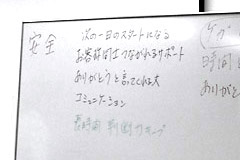 安全
次の一日のスタートになる
お客様同士つながれるサポート
ありがとうと言ってくれる
コミュニケーション
長時間
時間
ありがと